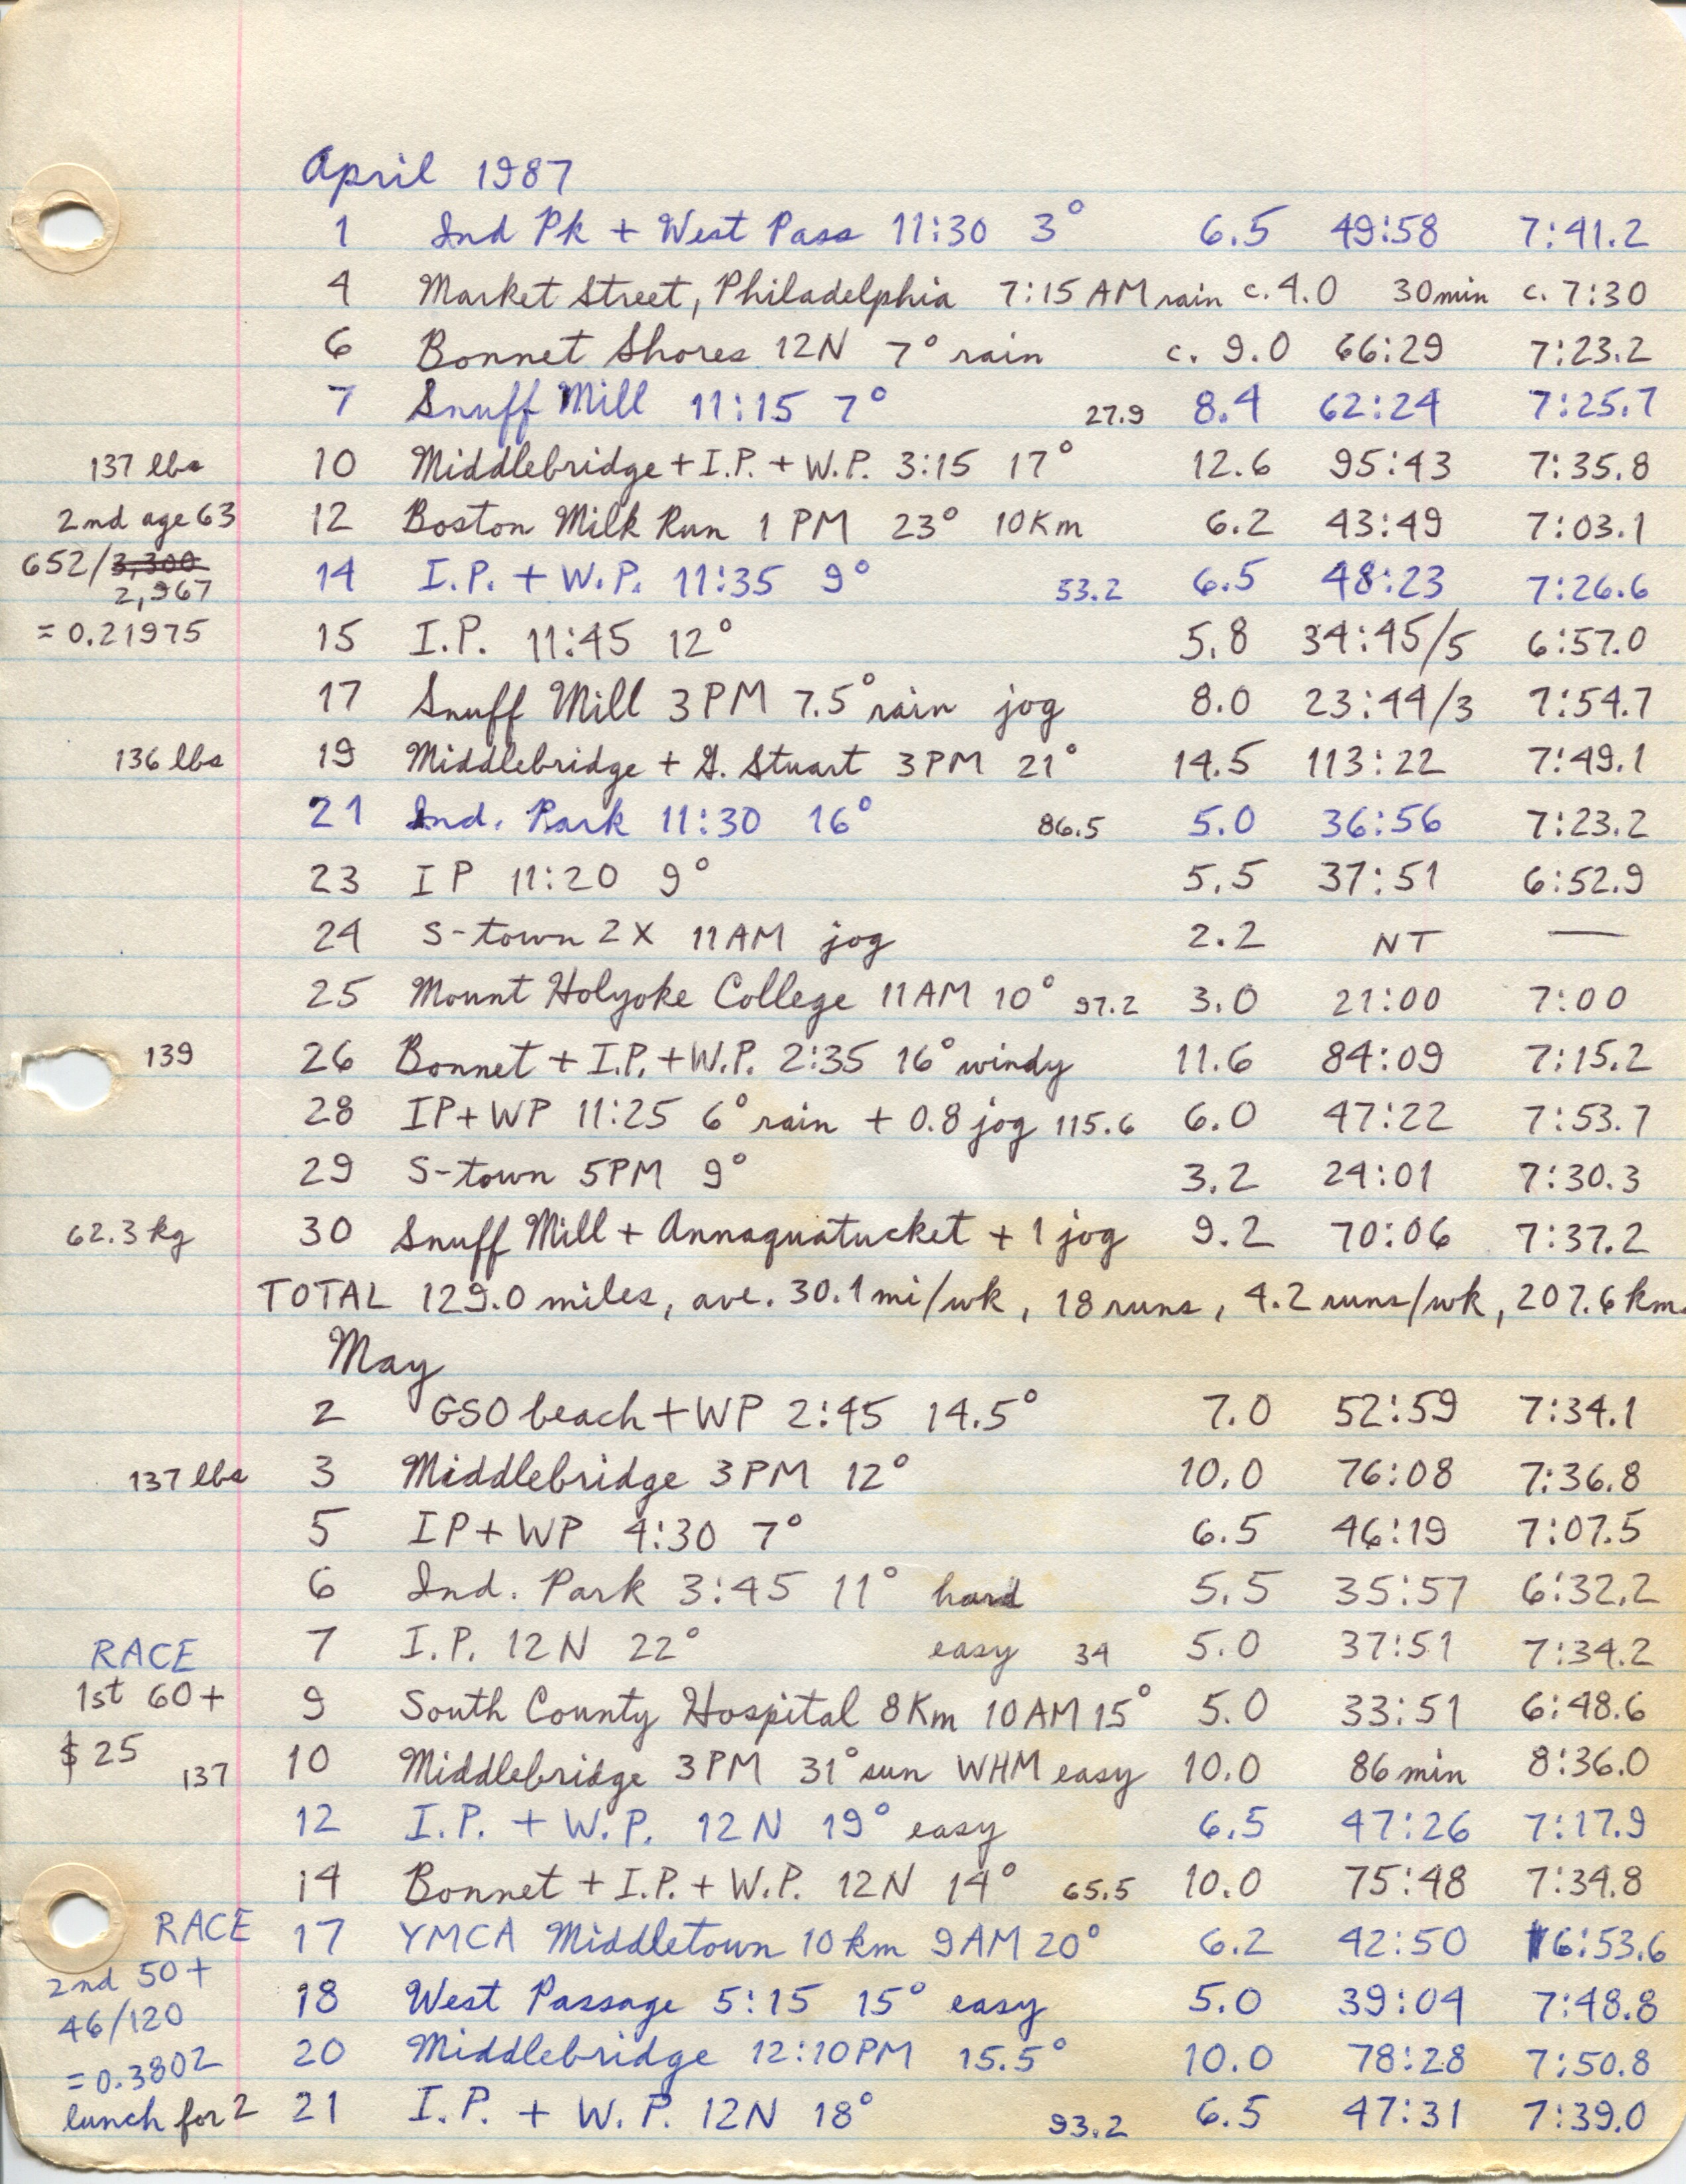 April 1987
1 Ind Pk + West Pass 11:30 3° 6.5 49:58 7:41.2
4 Market Street, Philadelphia 7:15 AM rain c. 4.0 30min c. 7:30
6 Bonnet Shores 12N 7° rain c. 9.0 66:29 7:23.2
7 Snuff Mill 11:15 7° 27.9 8.4 62:24 7:25.7
137 lbs 10 Middlebridge + I.P. + W.P. 3:15 17° 12.6 95:43 7:35.8
2nd age 63 12 Boston Milk Run 1 PM 23° 10Km 6.2 43:49 7:03.1
652/3,300 2,967 14 I.P. + W.P. 11:35 9° 53.2 6.5 48:23 7:26.6
= 0.21975 15 I.P. 11:45 12° 5.8 34:45/5 6:57.0
17 Snuff Mill 3 PM 7.5° rain jog 8.0 23:44/3 7:54.7
136 lbs 19 Middlebridge + G. Stuart 3PM 21° 14.5 113:22 7:49.1
21 Ind. Park 11:30 16° 86.5 5.0 36:56 7:23.2
23 IP 11:20 9° 5.5 37:51 6:52.9
24 S-town 2X 11AM jog 2.2 NT —
25 Mount Holyoke College 11AM 10° 97.2 3.0 21:00 7:00
139 26 Bonnet + I.P. + W.P. 2:35 16° windy 11.6 84:09 7:15.2
28 IP+WP 11:25 6° rain + 0.8 jog 115.6 6.0 47:22 7:53.7
29 S-town 5PM 9° 3.2 24:01 7:30.3
62.3 kg 30 Snuff Mill + Annaquatucket + 1 jog 9.2 70:06 7:37.2
TOTAL 129.0 miles, ave. 30.1 mi/wk, 18 runs, 4.2 runs/wk, 207.6 km.
May
2 GSO beach + WP 2:45 14.5° 7.0 52:59 7:34.1
137 lbs 3 Middlebridge 3PM 12° 10.0 76:08 7:36.8
5 IP + WP 4:30 7° 6.5 46:19 7:07.5
6 Ind. Park 3:45 11° hard 5.5 35:57 6:32.2
RACE 7 I.P. 12N 22° easy 34 5.0 37:51 7:34.2
1st 60+ 9 South County Hospital 8Km 10AM 15° 5.0 33:51 6:48.6
$25 137 10 Middlebridge 3PM 31° sun WHM easy 10.0 86 min 8:36.0
12 I.P. + W.P. 12N 19° easy 6.5 47:26 7:17.9
14 Bonnet + I.P. + W.P. 12N 14° 65.5 10.0 75:48 7:34.8
RACE 17 YMCA Middletown 10km 9AM 20° 6.2 42:50 6:53.6
2nd 50+
46/120 18 West Passage 5:15 15° easy 5.0 39:04 7:48.8
= 0.3802 20 Middlebridge 12:10PM 15.5° 10.0 78:28 7:50.8
lunch for 2 21 I.P. + W.P. 12N 18° 93.2 6.5 47:31 7:39.0